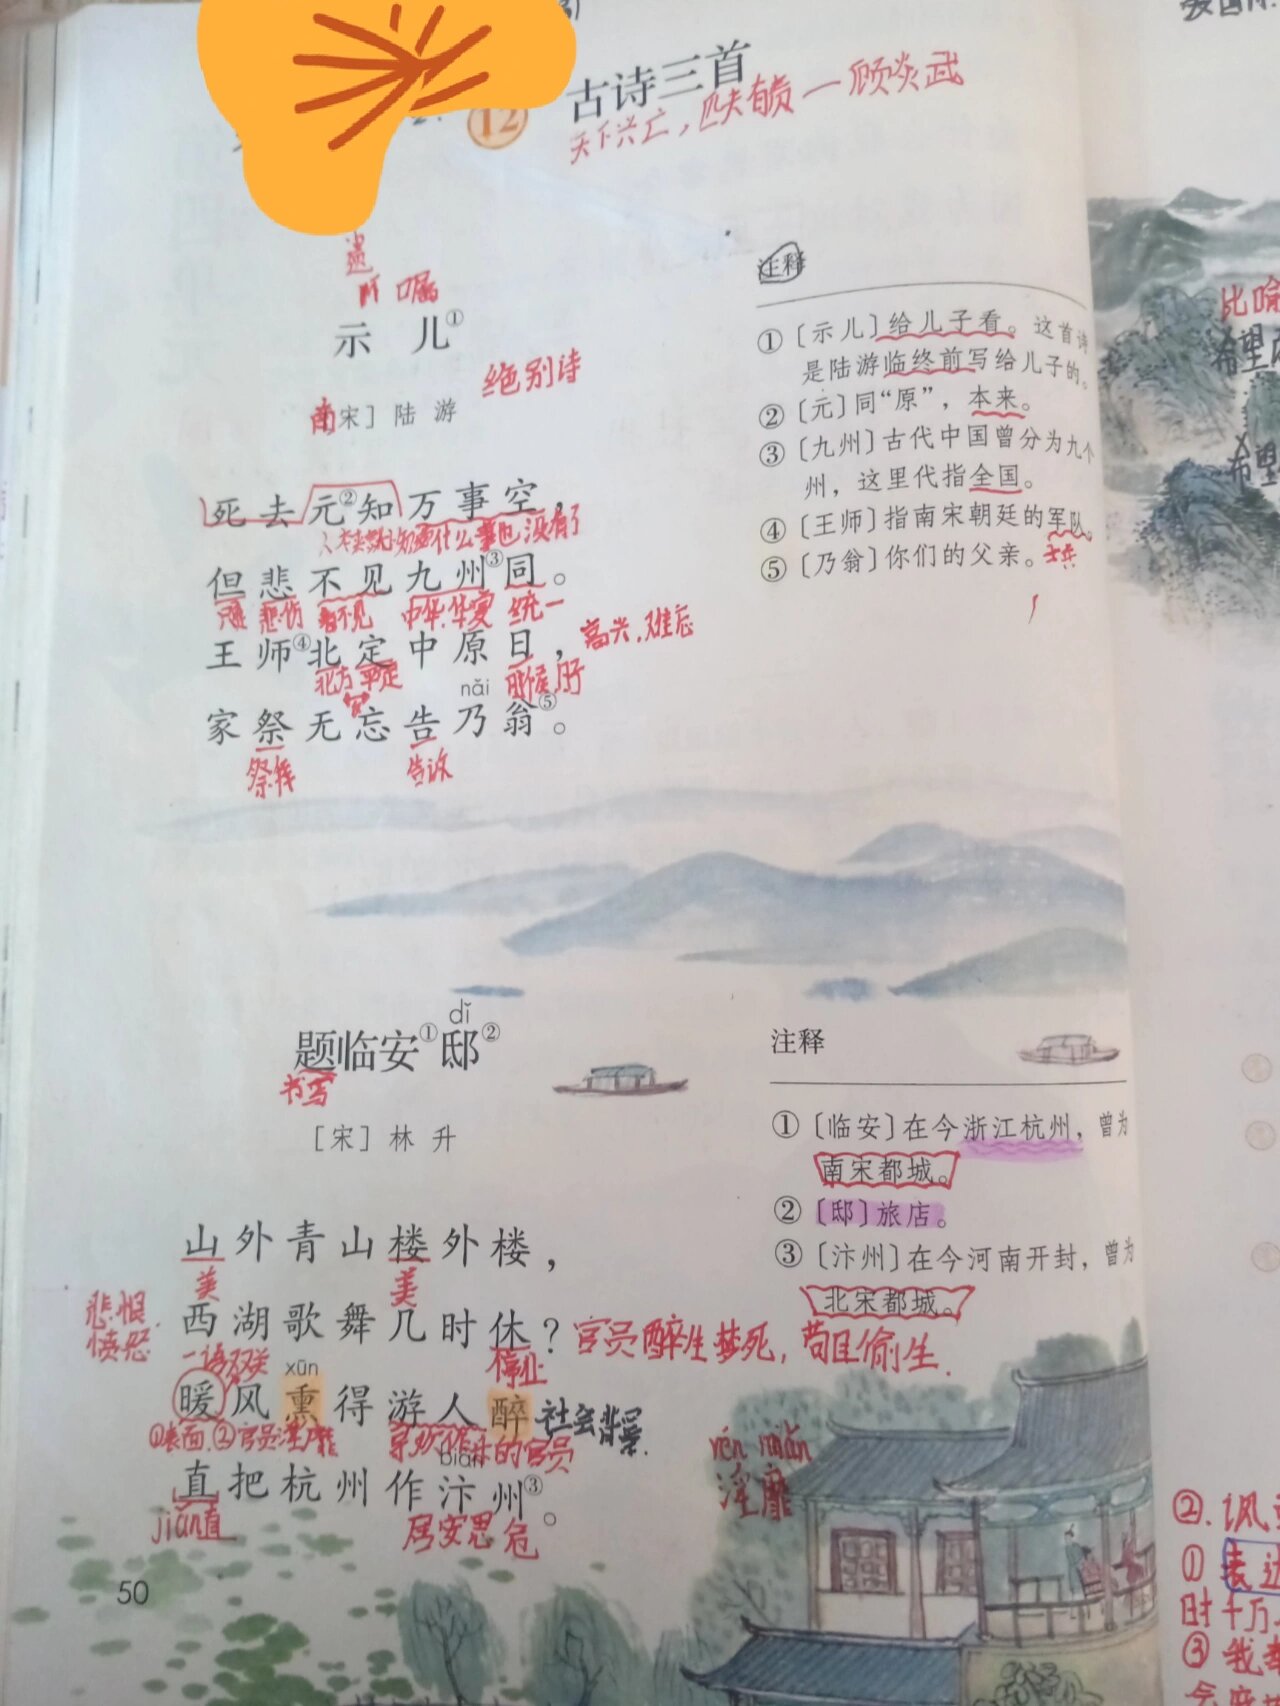 12 古诗三首
天下兴亡，匹夫有责一顾炎武
遗
嘱
示 儿①
绝别诗
南宋］陆 游
死去元②知万事空，
什么事也没有了
但悲不见九州③同。
只是 悲伤 看不见 中华.华夏 统一
王师④北定中原日，高兴.难忘
北方 平定 时候
nǎi
家祭无忘告乃翁⑤。
祭拜 告诉
注释
①〔示儿〕给儿子看。这首诗
是陆游临终前写给儿子的。
②〔元〕同“原”，本来。
③〔九州〕古代中国曾分为九个
州，这里代指全国。
④〔王师〕指南宋朝廷的军队。
⑤〔乃翁〕你们的父亲。
dǐ
题临安①邸②
书写
［宋］林 升
山外青山楼外楼，
美 美
悲恨.
愤怒
西湖歌舞几时休？官员醉生梦死，苟且偷生.
一语双关 停止
xūn
暖风熏得游人醉 社会背景.
①表面.②官员淫靡 的官员
biàn
直把杭州作汴州③。
jiǎn直 居安思危
淫靡
注释
①〔临安〕在今浙江杭州，曾为
南宋都城。
②〔邸〕旅店。
③〔汴州〕在今河南开封，曾为
北宋都城。
50
比喻
希望
希望
②.讽
①表达
时千万
③我